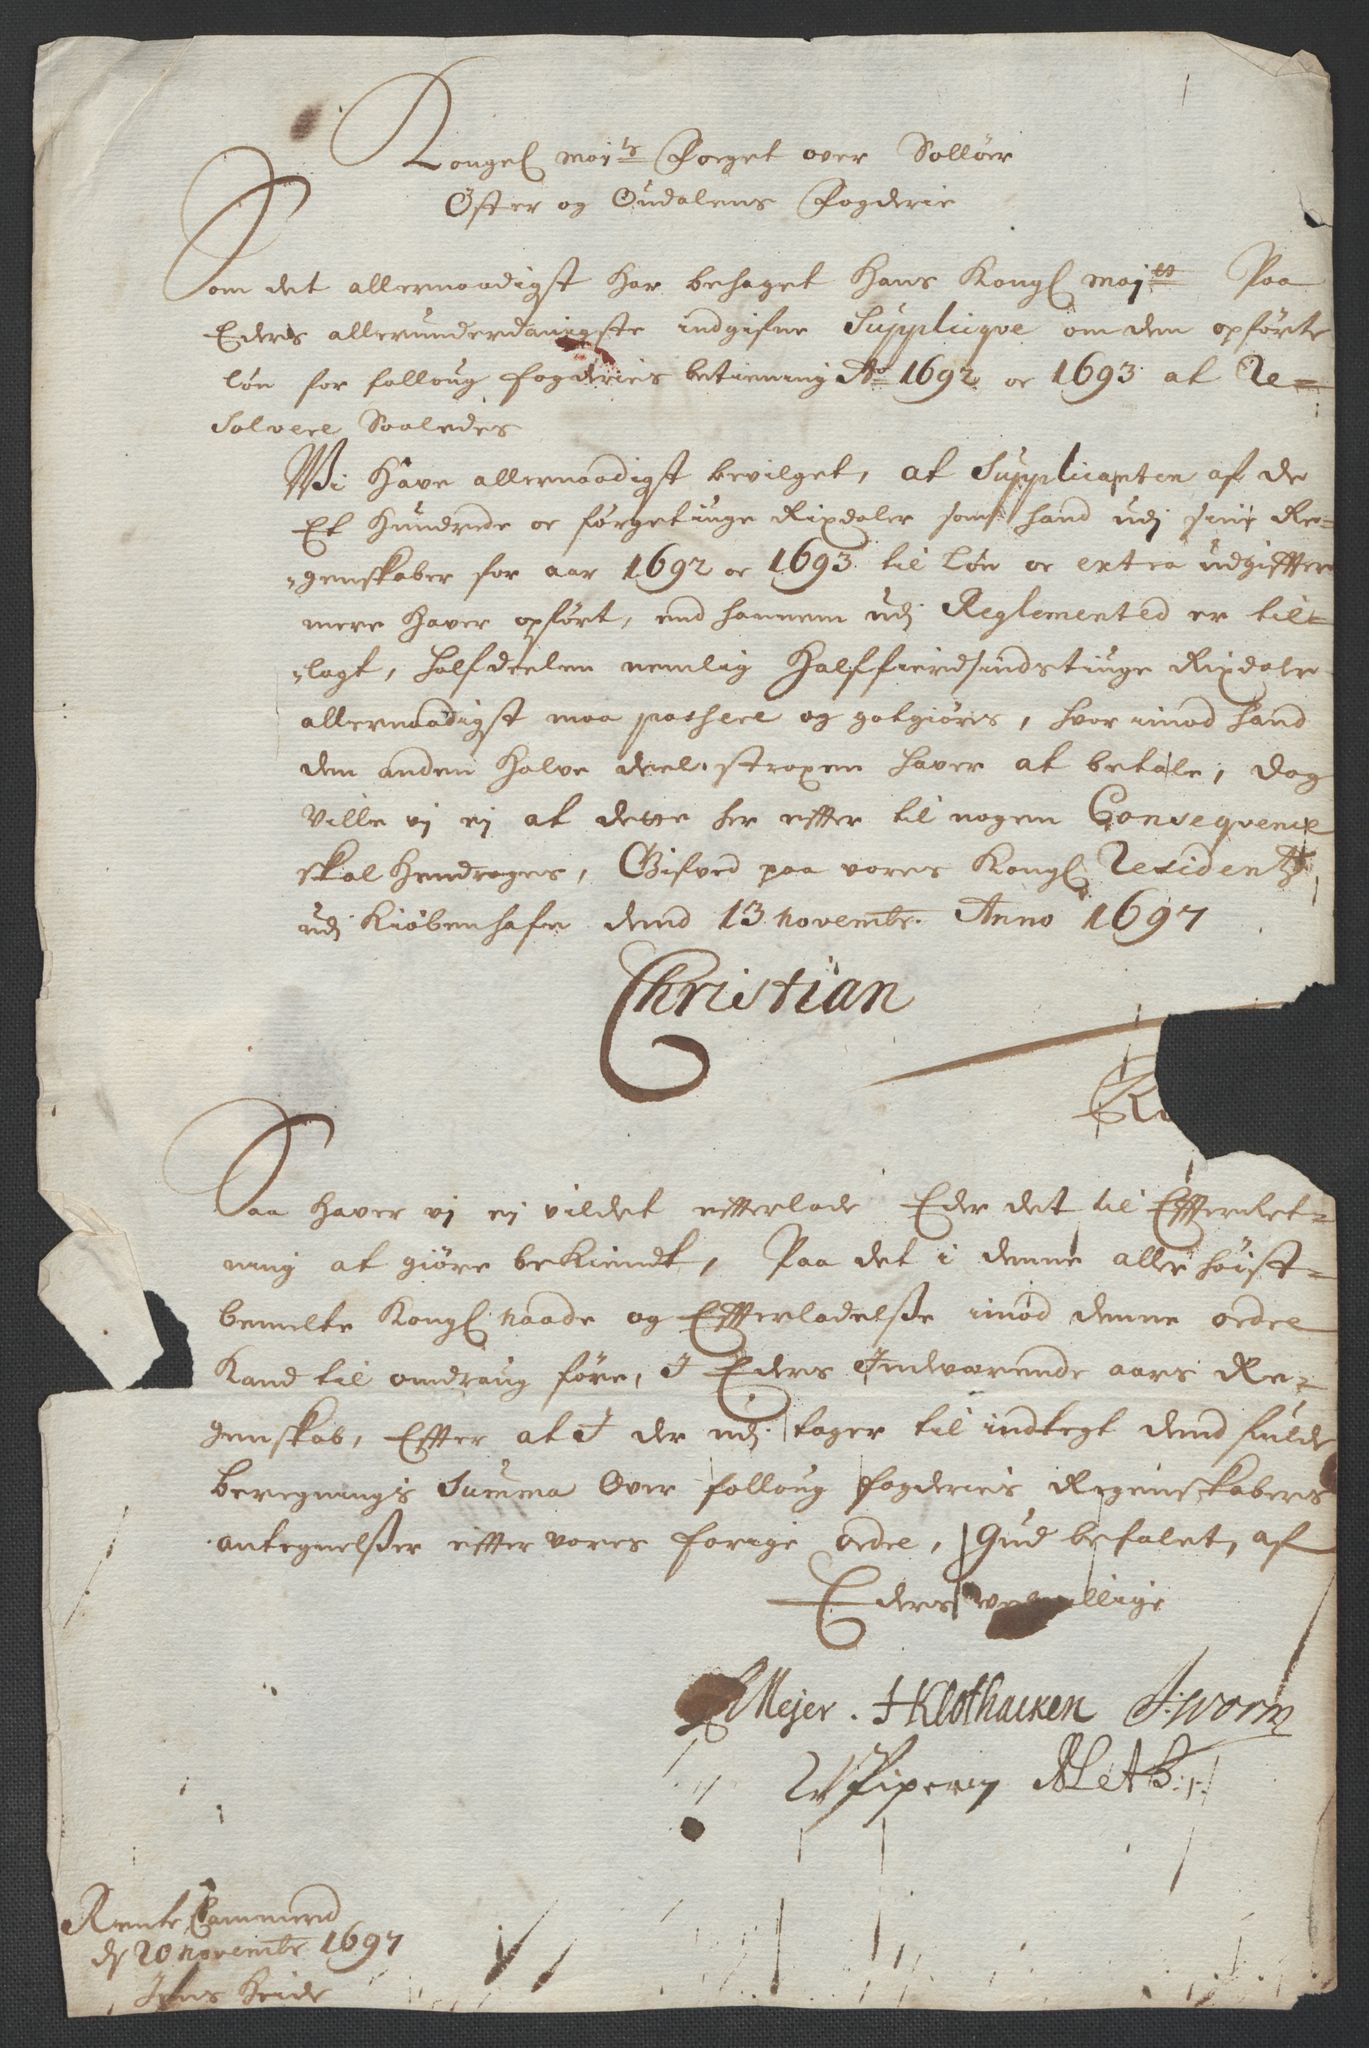 Kongel maj ts Foeget over Solløer
Øster og Oudalens Fogderie
Som det allernaadigst har behaget Hans Kongl maj ts Paa
Eders allerunderdanigste indgifne Supplicqve om den opførte
løn for samme fogderies betiening Ao 1692 oc 1693 at Re=
solvere Saaledes
Wi Have allernaadigst bevilget, at Supplicanten af de
Et Hundrede oc førgetiuge Rixdaler som hand udj sine Re=
=genskaber for aar 1692 oc 1693 til Løn oc extra udgiffter
mere haver opført, end hannem udj Reglemented er til=
=lagt, halfdeelen nemlig Halffierdsindstiuge Rixdaler
allernaadigst maa passere og gotgiøris, hvor imod hand
den anden halve deel straxen haver at betale, dog
Ville vj ej at dette her effter til nogen Conseqvence
skal hendrages, Gifved paa vores Kongl Residentz
udj Kiøbenhafn dend 13 Novembr. Anno 1697
Christian
Saa haver vj ej vildet efferlade Eder det til Effterret=
ning at giøre bekiendt, Paa det i denne aller høist=
bemelte Kongl Naade og Effterladelsse imod denne ordre
Kand til omdraug føre, I Eders Indværende aars Re=
genskab, Effter at I der udj tager til indtegt dend fulde
beregnings Summa Over samme fogderies Regenskabers
antegnelsser effter vores forige ordre, Gud befalet, af
Eders velvillige
Mejer . H Klothacken J: Worm
Piper
Rente Cammerid
d 20 Novembr 1697
Jens Heide